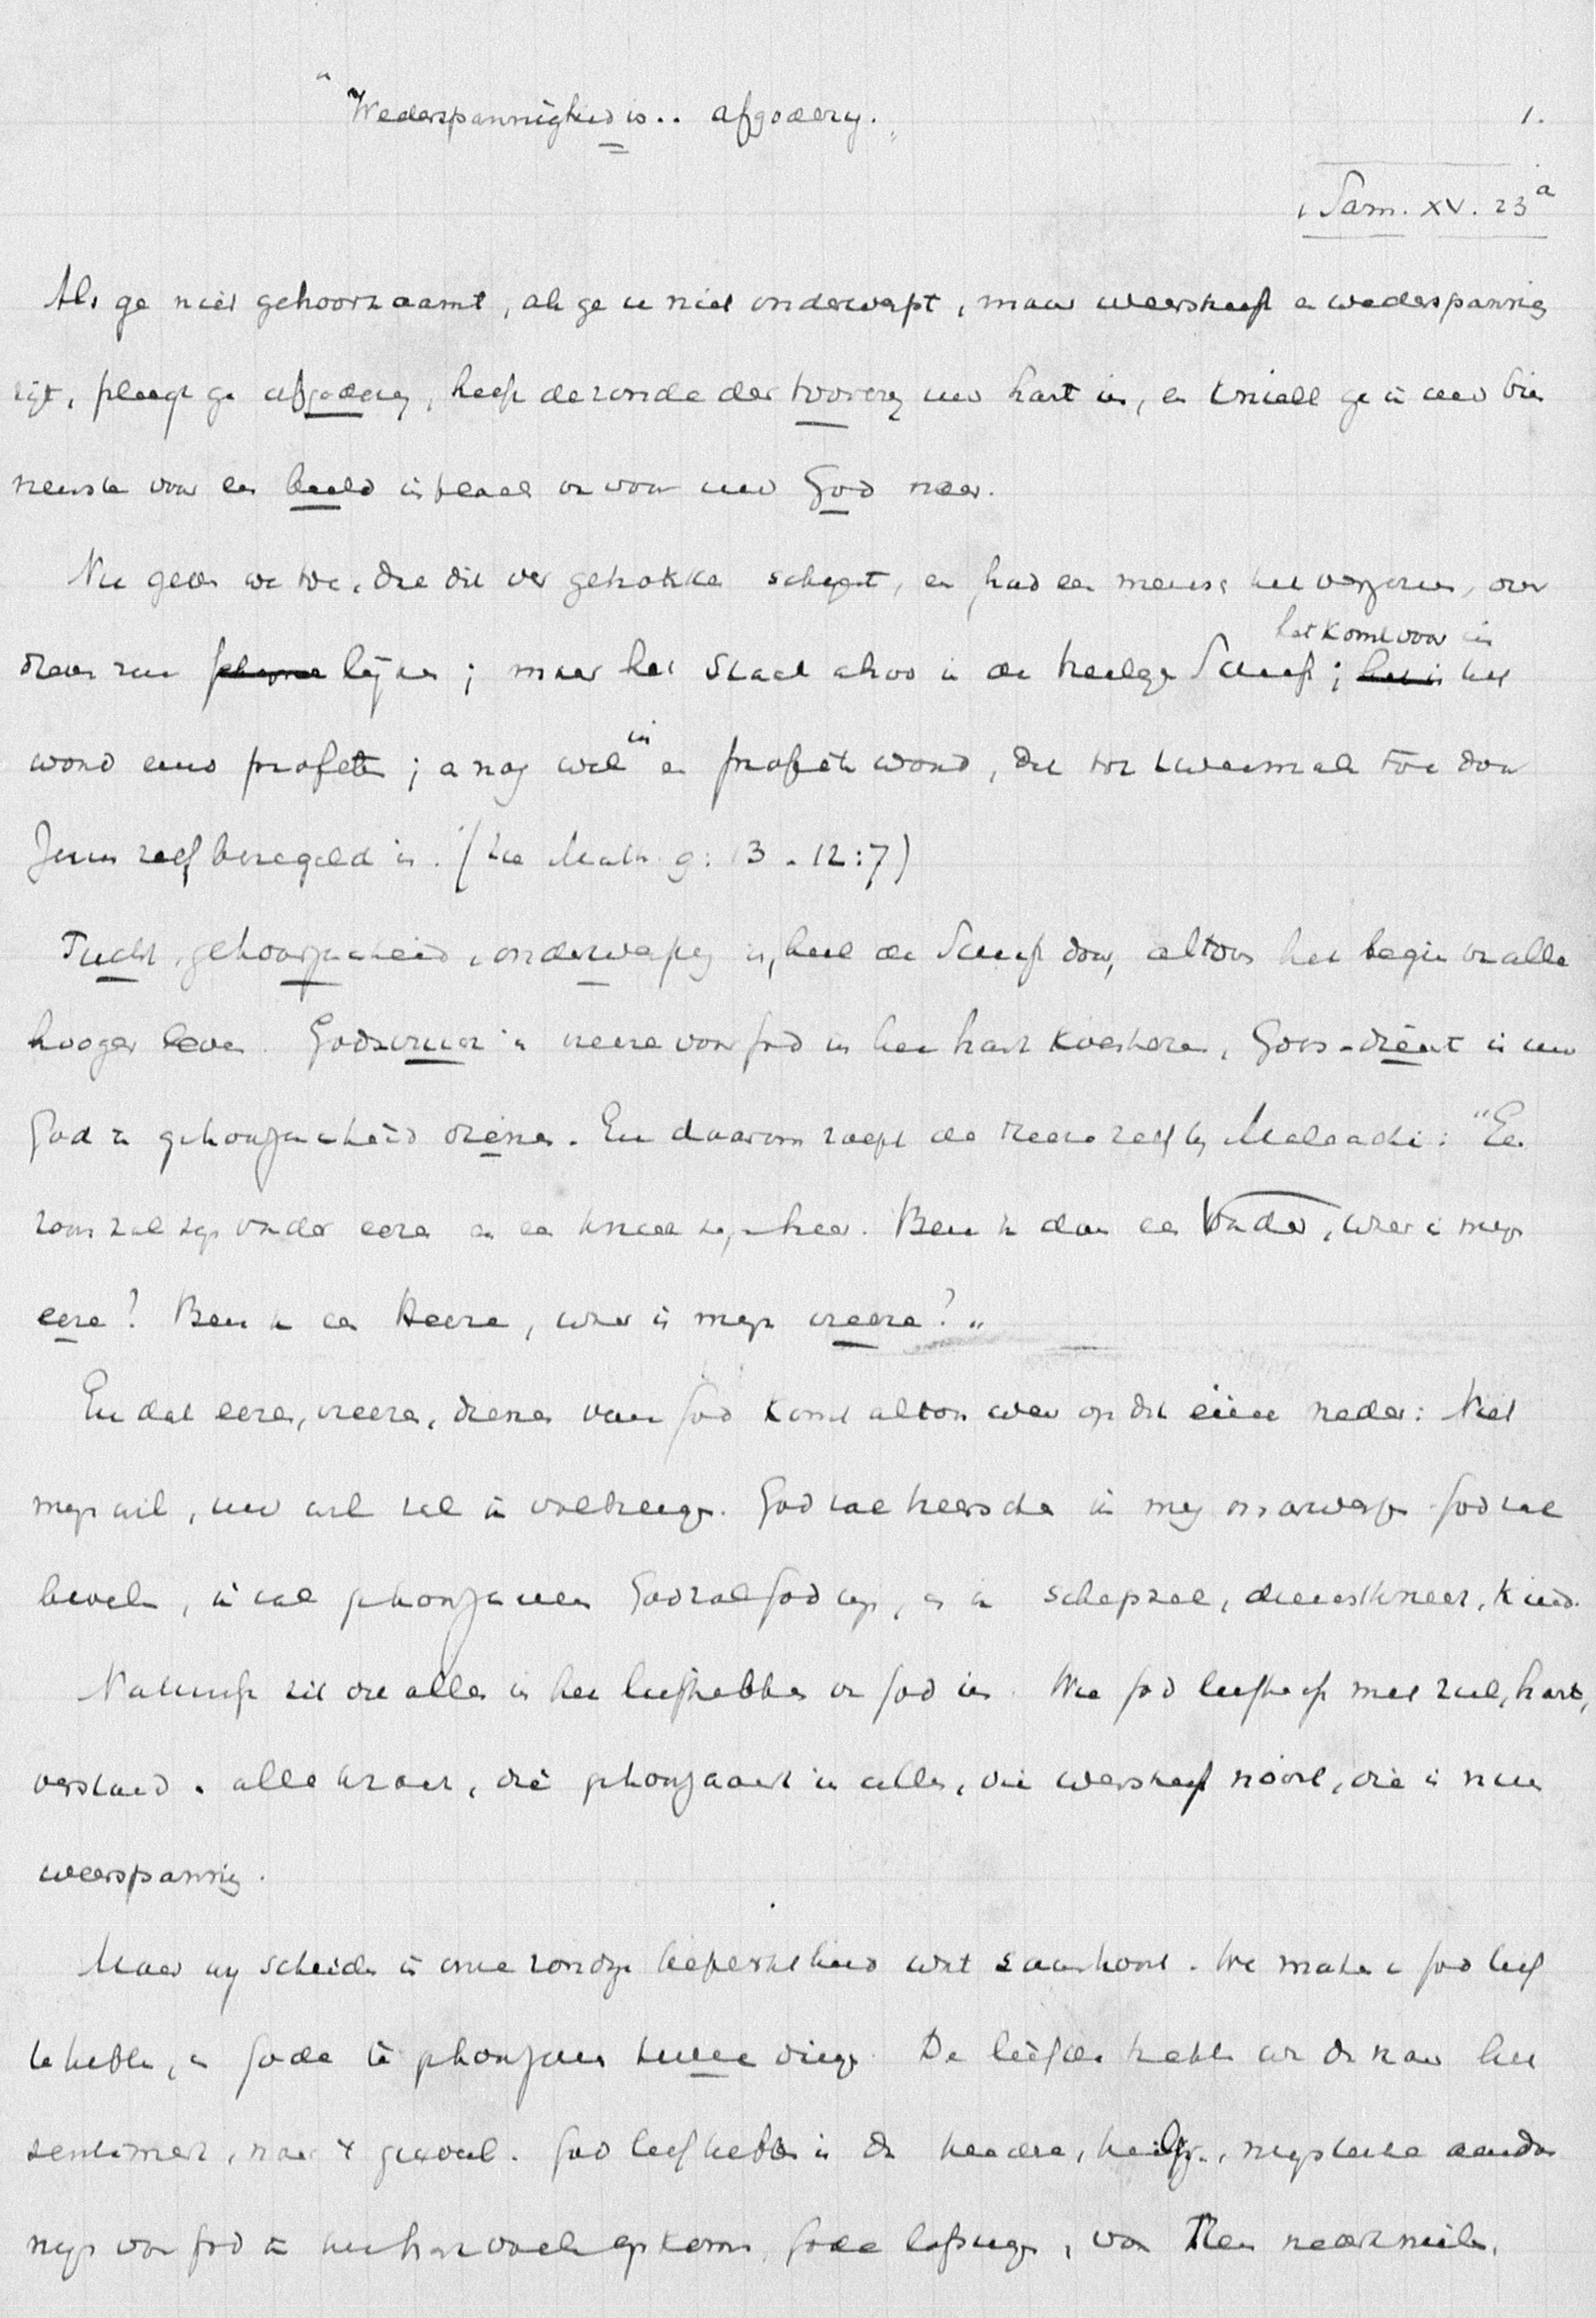 "Wederspannigheid is.. afgodery."
1.
1 Sam. XV. 23a
Als ge niet gehoorzaamt, als ge u niet onderwerpt, maar weerstreeft en wederspannig
zijt, pleegt ge afgodery, heeft de zonde der toovery uw hart in, en knielt ge in uw bin
nenste voor een beeld in plaats van voor uw God neer.
Nu geven we toe, dat dit ver getrokken schijnt, en had een mensch het verzonnen, over
dreven zou lijken; maar het staat alzoo in de heilige Schrift; het komt voor in het
woord eens profeten; en nog wel in een profeten woord, dat tot tweemaal toe door
Jezus zelf bezegeld is. (zie Math. 9:13 - 12:7)
Tucht, gehoorzaamheid, onderwerping is, heel de Schrift door, altoos het begin van alle
hooger leven. Godsvrucht is vreeze voor God in het hart koesteren, Gods-dienst is uw
God in gehoorzaamheid dienen. En daarom roept de Heere zelf by Maleachi: "Een
zoon zal zijn vader eeren en een knecht zijn heer. Ben ik dan een Vader, waar is mijn
eere? Ben ik een Heere, waar is mijn vreeze?"
En dat eeren, vreezen, dienen van God komt altoos weer op dit ééne neder: Niet
mijn wil, uw wil zal ik volbrengen. God zal heerschen ik mij onderwerpen. God zal
bevelen, ik zal gehoorzamen. God zal God zijn, en ik schepsel, dienstknecht, kind.
Natuurlijk zit dit alles in het liefhebben van God in. Wie God liefheeft met ziel, hart,
verstand en alle kracht, die gehoorzaamt in alles, die weerstreeft nooit, die is nooit
weerspannig.
Maar wy scheiden in onze zondige beperktheid wat saamhoort. We maken van God lief
te hebben, en Gode te gehoorzamen twee dingen. De liefde trekken we dan naar het
sentiment, naar 't gevoel. God liefhebben is dan teedere, heilige, mystieke aandoe
ningen voor God in het hart voelen opkomen, Gode lofzingen, voor Hem neerknielen,